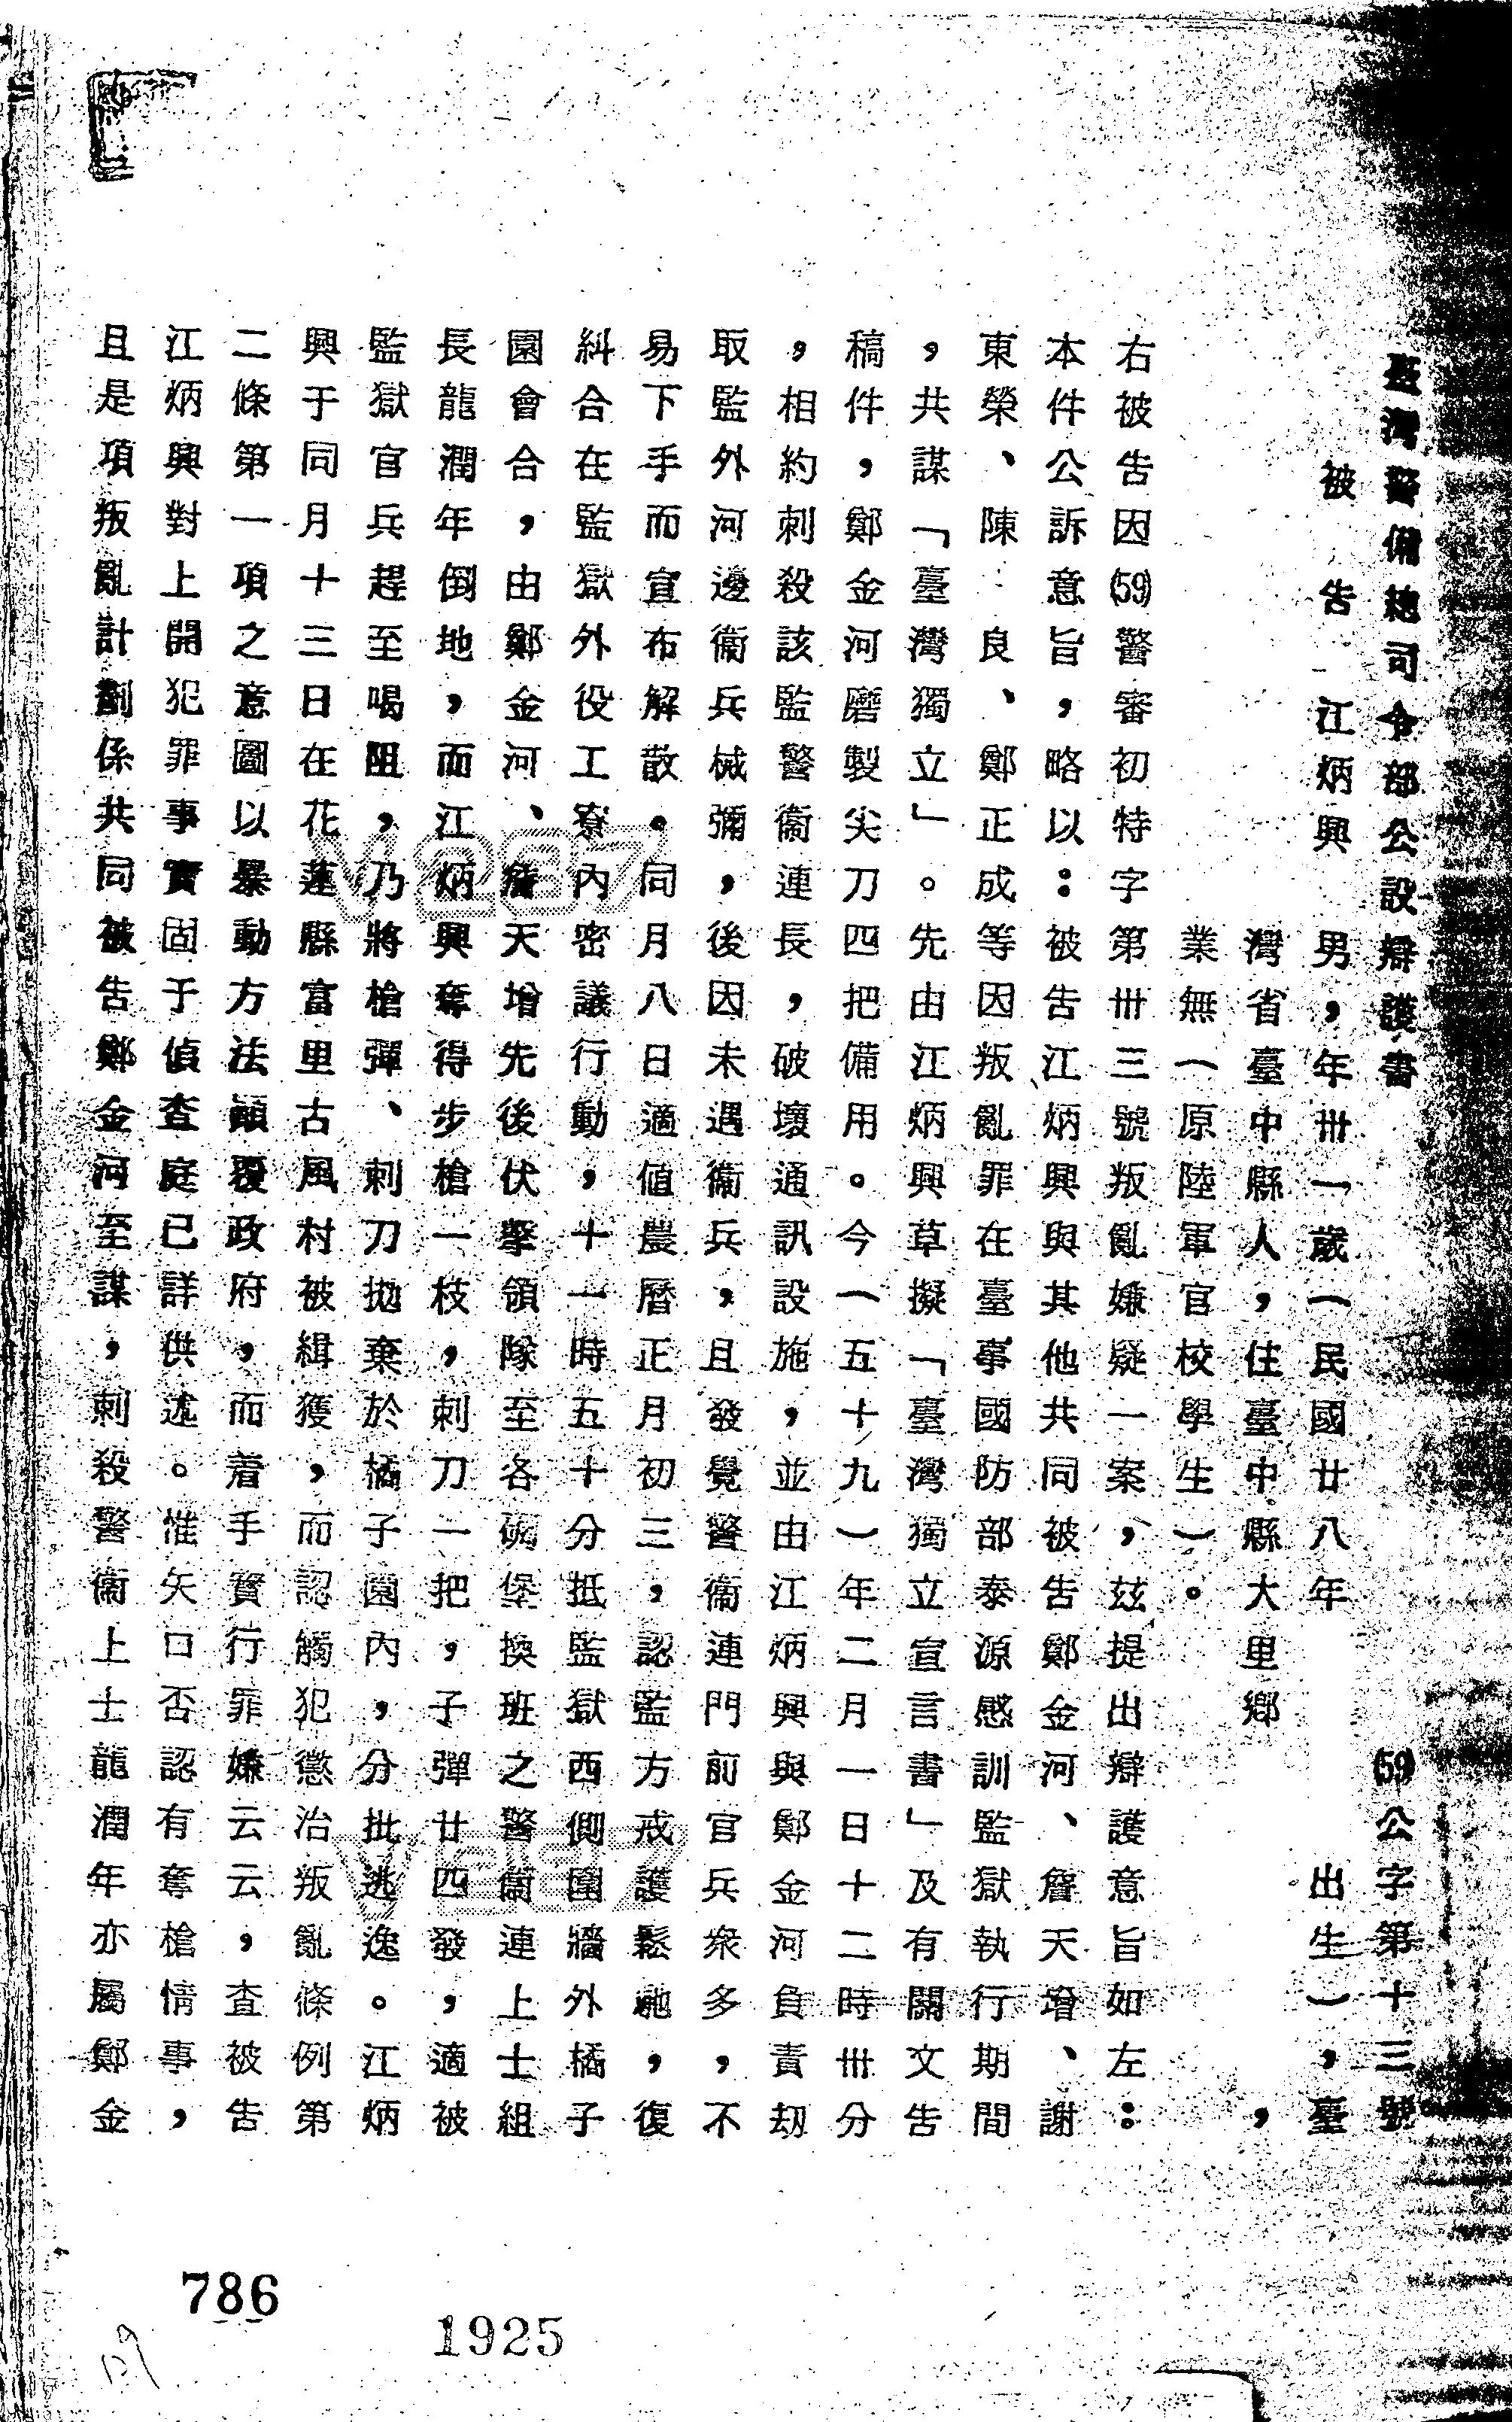 臺灣警備總司令部公設辯護書 (59)公字第十三號
被告 江炳興 男，年卅一歲（民國廿八年 出生），臺
灣省臺中縣人，住臺中縣大里鄉 ，
業無（原陸軍官校學生）。
右被告因(59)警審初特字第卅三號叛亂嫌疑一案，茲提出辯護意旨如左：
本件公訴意旨，略以：被告江炳興與其他共同被告鄭金河、詹天增、謝
東榮、陳良、鄭正成等因叛亂罪在臺東國防部泰源感訓監獄執行期間
，共謀「臺灣獨立」。先由江炳興草擬「臺灣獨立宣言書」及有關文告
稿件，鄭金河磨製尖刀四把備用。今（五十九）年二月一日十二時卅分
，相約刺殺該監警衞連長，破壞通訊設施，並由江炳興與鄭金河負責刧
取監外河邊衞兵械彌，後因未遇衞兵，且發覺警衞連門前官兵衆多，不
易下手而宣布解散。同月八日適值農曆正月初三，認監方戒護鬆馳，復
糾合在監獄外役工寮內密議行動，十一時五十分抵監獄西側圍牆外橘子
園會合，由鄭金河、詹天增先後伏擊領隊至各碉堡換班之警衞連上士組
長龍潤年，倒地，而江炳興奪得步槍一枝，刺刀一把，子彈廿四發，適被
監獄官兵趕至喝阻，乃將槍彈、刺刀拋棄於橘子園內，分批逃逸。江炳
興于同月十三日在花蓮縣富里古風村被緝獲，而認觸犯懲治叛亂條例第
二條第一項之意圖以暴動方法顛覆政府，而着手實行罪嫌云云，查被告
江炳興對上開犯罪事實固于偵查庭已詳供述。惟矢口否認有奪槍情事，
且是項叛亂計劃係共同被告鄭金河至謀，刺殺警衞上士龍潤年亦屬鄭金
786
1925